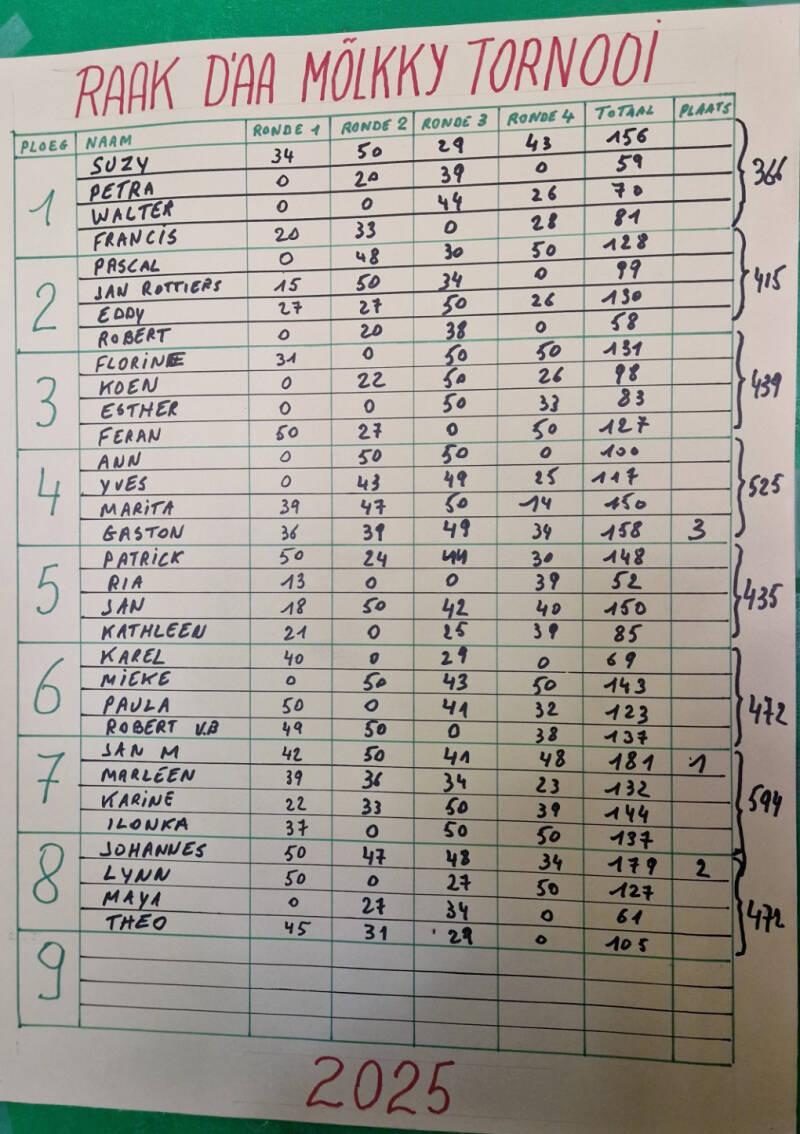 RAAK D'AA MÖLKKY TORNOOI
PLOEG NAAM RONDE 1 RONDE 2 RONDE 3 RONDE 4 TOTAAL PLAATS
1 SUZY 34 50 29 43 156 366
PETRA 0 20 39 0 59
WALTER 0 0 44 26 70
FRANCIS 20 33 0 28 81
2 PASCAL 0 48 30 50 128 415
JAN ROTTIERS 15 50 34 0 99
EDDY 27 27 50 26 130
ROBERT 0 20 38 0 58
3 FLORINE 31 0 50 50 131 439
KOEN 0 22 50 26 98
ESTHER 0 0 50 33 83
FERAN 50 27 0 50 127
4 ANN 0 50 50 0 100 525
YVES 0 43 49 25 117
MARITA 39 47 50 14 150
GASTON 36 39 49 34 158 3
5 PATRICK 50 24 44 30 148 435
RIA 13 0 0 39 52
JAN 18 50 42 40 150
KATHLEEN 21 0 25 39 85
6 KAREL 40 0 29 0 69 472
MIEKE 0 50 43 50 143
PAULA 50 0 41 32 123
ROBERT V.B 49 50 0 38 137
7 JAN M 42 50 41 48 181 1 594
MARLEEN 39 36 34 23 132
KARINE 22 33 50 39 144
ILONKA 37 0 50 50 137
8 JOHANNES 50 47 48 34 179 2 472
LYNN 50 0 27 50 127
MAYA 0 27 34 0 61
THEO 45 31 29 0 105
9
2025